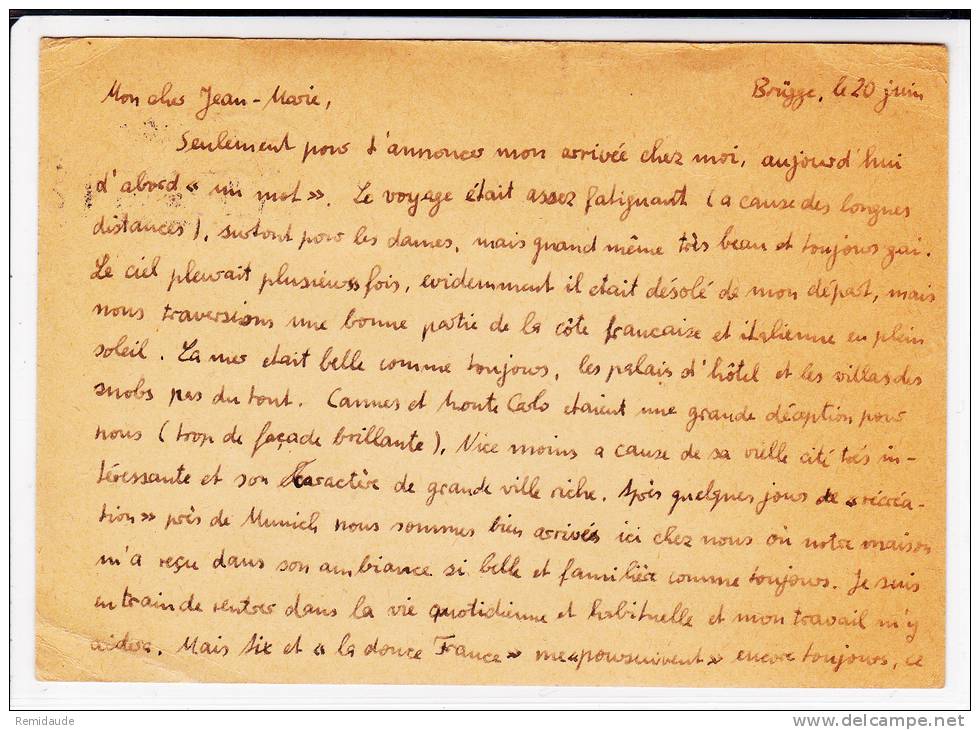 Brügge, le 20 juin
Mon cher Jean-Marie,
Seulement pour t'annoncer mon arrivée chez moi, aujourd'hui
d'abord « un mot ». Le voyage était assez fatiguant (a cause des longues
distances), surtout pour les dames, mais quand même très beau et toujours gai.
Le ciel pleurait plusieurs fois, evidemment il etait désolé de mon départ, mais
nous traversions une bonne partie de la côte francaise et italienne en plein
soleil. La mer etait belle comme toujours, les palais d'hôtel et les villas des
snobs pas du tout. Cannes et Monte Carlo etaient une grande déception pour
nous (trop de façade brillante), Nice moins a cause de sa vielle cité très in-
téressante et son caractère de grande ville riche. Après quelques jours de «récréa-
tion» près de Munich nous sommes bien arrivés ici chez nous où notre maison
m'a reçu dans son ambiance si belle et familière comme toujours. Je suis
en train de rentrer dans la vie quotidienne et habituelle et mon travail m'y
aidera. Mais Six et « la douce France » me «poursuivent» encore toujours, ce
Remidaude
www.delcampe.net